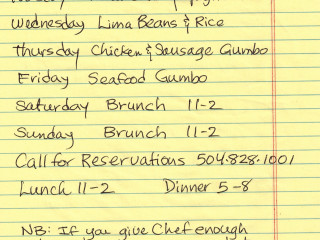 Wednesday Lima Beans & Rice
Thursday Chicken & Sausage Gumbo
Friday Seafood Gumbo
Saturday Brunch 11-2
Sunday Brunch 11-2
Call for Reservations 504.828.1001
Lunch 11-2 Dinner 5-8
NB: If you give Chef enough